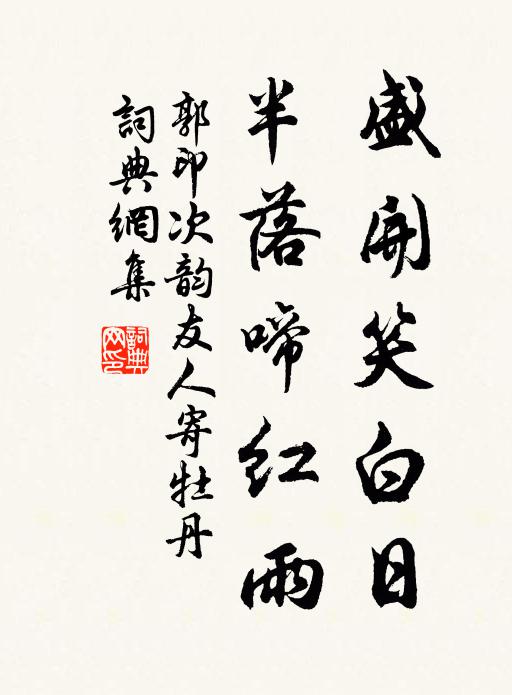 盛開笑白日
半落啼紅雨
郭印次韵友人寄牡丹
詞典網集
詞典
网印